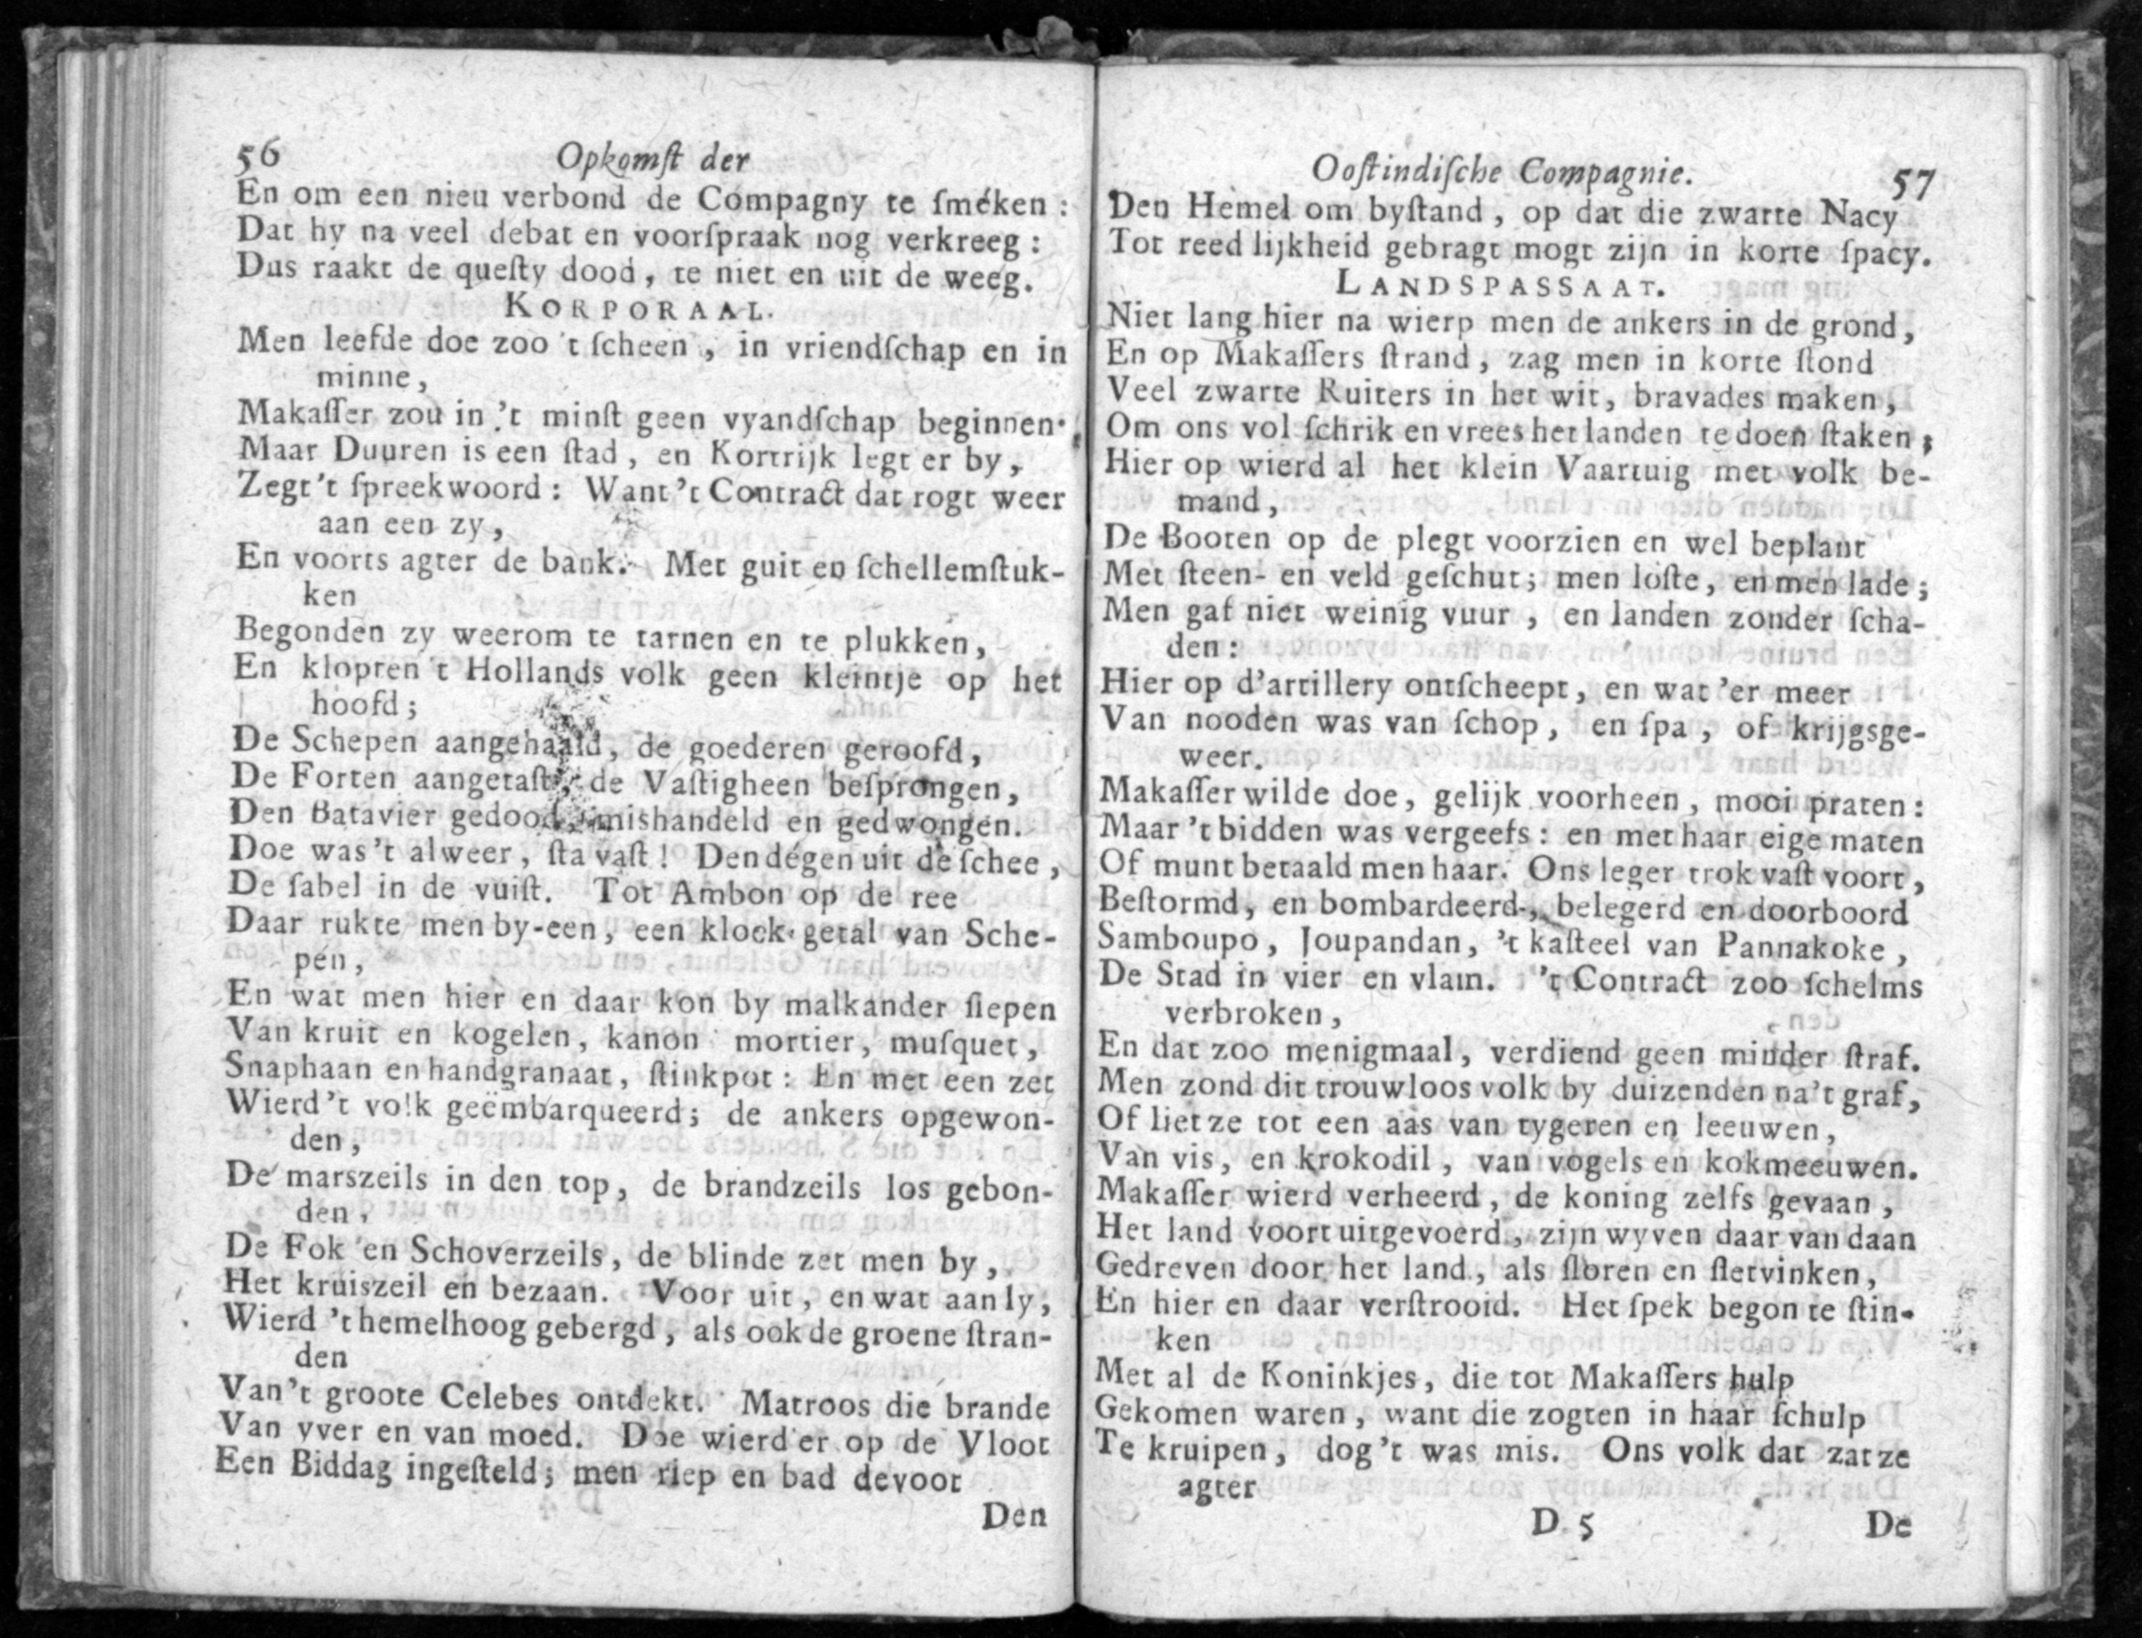 56 Opkomſt der
En om een nieu verbond de Compagny te ſméken :
Dat hy na veel debat en voorſpraak nog verkreeg :
Dus raakt de queſty dood, te niet en uit de weég.
KORPORAAL.
Men leefde doe zoo 't ſcheen, in vriendſchap en in
minne,
Makaſſer zou in 't minſt geen vyandſchap beginnen.
Maar Duuren is een ſtad, en Kortrijk legt er by,
Zegt 't ſpreekwoord : Want 't Contract dat rogt weer
aan een zy,
En voorts agter de bank. Met guit en ſchellemſtuk-
ken
Begonden zy weerom te tarnen en te plukken,
En klopten 't Hollands volk geen kleintje op het
hoofd ;
De Schepen aangehaald, de goederen geroofd,
De Forten aangetaſt, de Vaſtigheen beſprongen,
Den Batavier gedood, mishandeld en gedwongen.
Doe was 't alweer, ſta vaſt ! Den dégen uit de ſchee,
De ſabel in de vuiſt. Tot Ambon op de ree
Daar rukte men by-een, een kloek getal van Sche-
pen,
En wat men hier en daar kon by malkander ſlepen
Van kruit en kogelen, kanon mortier, muſquet,
Snaphaan en handgranaat, ſtinkpot : En met een zet
Wierd 't volk geëmbarqueerd; de ankers opgewon-
den,
De marszeils in den top, de brandzeils los gebon-
den,
De Fok en Schoverzeils, de blinde zet men by,
Het kruiszeil en bezaan. Voor uit, en wat aan ly,
Wierd 't hemelhoog gebergd, als ook de groene ſtran-
den
Van 't groote Celebes ontdekt. Matroos die brande
Van yver en van moed. Doe wierd er op de Vloot
Een Biddag ingeſteld; men riep en bad devoot
Den
Ooſtindiſche Compagnie. 57
Den Hemel om byſtand, op dat die zwarte Nacy
Tot reedlijkheid gebragt mogt zijn in korte ſpacy.
LANDSPASSAAT.
Niet lang hier na wierp men de ankers in de grond,
En op Makaſſers ſtrand, zag men in korte ſtond
Veel zwarte Ruiters in het wit, bravades maken,
Om ons vol ſchrik en vrees het landen te doen ſtaken ;
Hier op wierd al het klein Vaartuig met volk be-
mand,
De Booten op de plegt voorzien en wel beplant
Met ſteen- en veld geſchut; men loſte, en men lade ;
Men gaf niet weinig vuur, en landen zonder ſcha-
den :
Hier op d'artillery ontſcheept, en wat 'er meer
Van nooden was van ſchop, en ſpa, of krijgsge-
weer.
Makaſſer wilde doe, gelijk voorheen, mooi praten :
Maar 't bidden was vergeefs : en met haar eige maten
Of munt betaald men haar. Ons leger trok vaſt voort,
Beſtormd, en bombardeerd, belegerd en doorboord
Samboupo, Joupandan, 't kaſteel van Pannakoke,
De Stad in vier en vlam. 't Contract zoo ſchelms
verbroken,
En dat zoo menigmaal, verdiend geen minder ſtraf.
Men zond dit trouwloos volk by duizenden na 't graf,
Of liet ze tot een aas van tygeren en leeuwen,
Van vis, en krokodil, van vogels en kokmeeuwen.
Makaſſer wierd verheerd, de koning zelfs gevaan,
Het land voort uitgevoerd, zijn wyven daar van daan
Gedreven door het land, als ſloren en ſletvinken,
En hier en daar verſtrooid. Het ſpek begon te ſtin-
ken
Met al de Koninkjes, die tot Makaſſers hulp
Gekomen waren, want die zogten in haar ſchulp
Te kruipen, dog 't was mis. Ons volk dat zat ze
agter
D 5 De